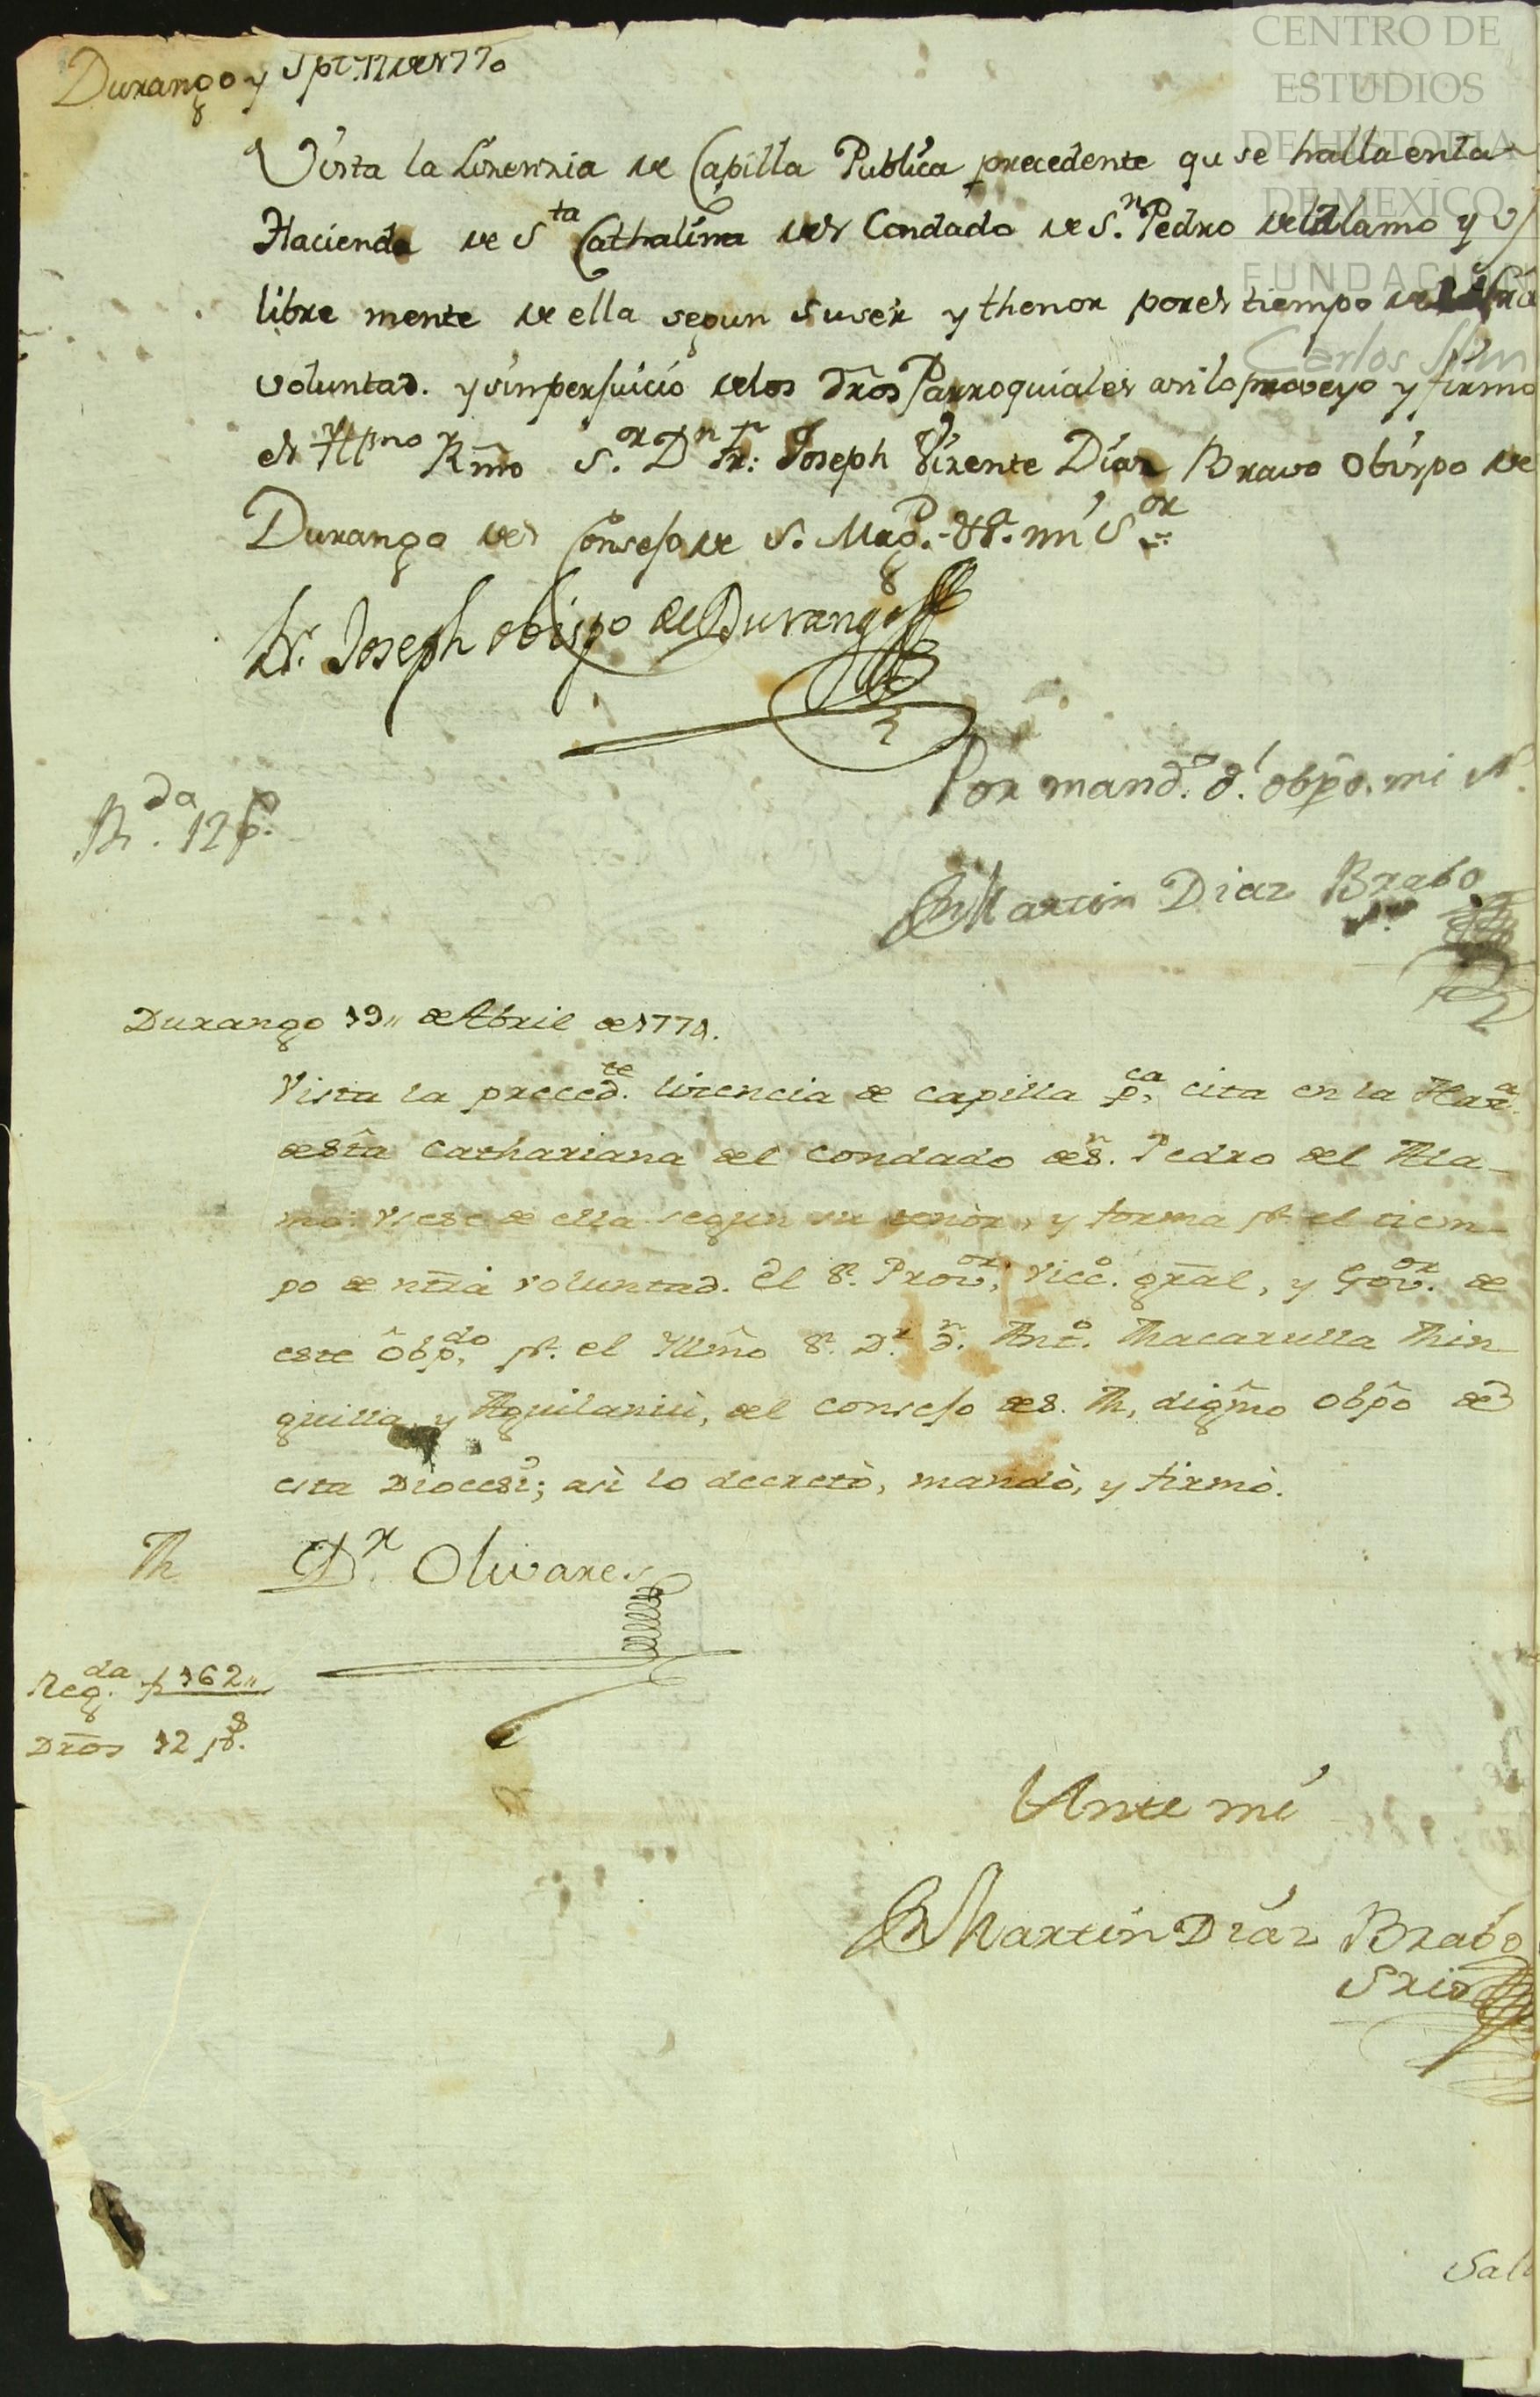 CENTRO DE
ESTUDIOS
DE HISTORIA
DE MEXICO
FUNDACION
Carlos Slim
Durango y Spt. 12 de 1770
Vista la Lizenzia de Capilla Publica precedente qu se halla enla
Hacienda de Sta Cathalina del Condado de S.n Pedro del Alamo y
libre mente de ella segun suser y thenor porel tiempo de ñra
voluntad. y sinperjuicio delos Dr̃os Parroquiales asi lo proveyo y firmo
el Illmo Rm̃o S.or Dn Fr: Joseph Vizente Diaz Bravo Obispo de
Durango del Consejo de S. Magd. &a. mi Sor
Fr. Joseph obispo de Durango
Por mandº. dl. obp̃o. mi Sr.
R.da 12 p.s
Martin Diaz Brabo
Srio.
Durango 19,, de Abril de 1771.
Vista la precedte. licencia de capilla p.ca, cita en la Haz.a
de Sta Cathariana del condado de Sn. Pedro del Ala-
mo: Usese de ella segun su tenòr, y forma pr. el tiem-
po de ntr̃a voluntad. El Sr. Provor., Vicº. gr̃al, y Govor. de
este Obpdo, pr. el Illm̃o Sr. Dr. dn. Antº. Macarulla Min-
guilla, y Aguilaniu, del consejo de S. M, digm̃o Obp̃o de
esta Diocesi; asi lo decretò, mandò, y firmò.
M Dr. Olivares
Regda. f 162,,
Dr̃os 12 ps.
Ante mí
Martin Diáz Brabo
Srio